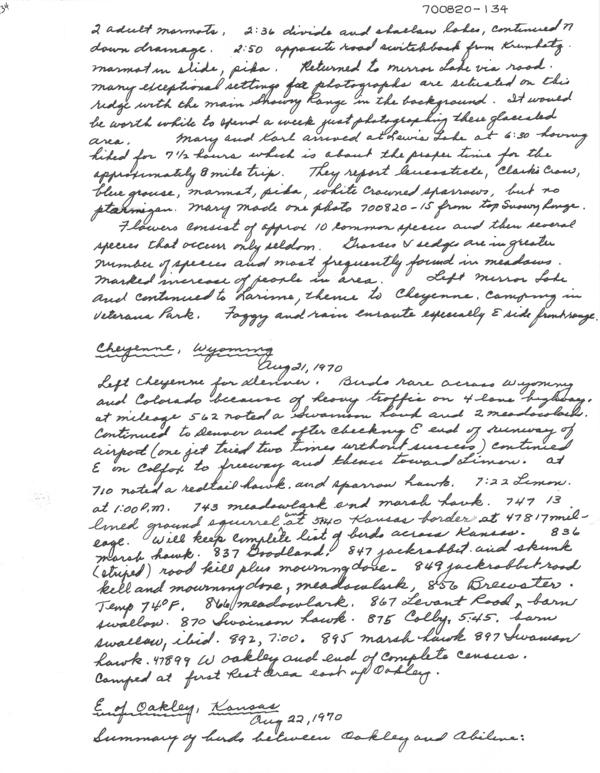 34
700820-134
2 adult marmots. 2:36 divide and shallow lakes, continued N
down drainage. 2:50 opposite road switchback from Krumholtz.
marmot in slide, pika. Returned to mirror Lake via road.
many exceptional settings for photographs are situated on this
ridge with the main Snowy Range in the background. It would
be worth while to spend a week just photographing these glaciated
area. Mary and Karl arrived at Lewis Lake at 6:30 having
hiked for 7½ hours which is about the proper time for the
approximately 8 mile trip. They report leucosticte, Clarks Crow,
blue grouse, marmat, pika, white crowned sparrows, but no
ptarmigan. Mary made one photo 700820-15 from top Snowy Range.
Flowers consist of approx 10 common species and then several
species that occur only seldom. Grasses & sedges are in greater
number of species and most frequently found in meadows.
Marked increase of people in area. Left Mirror Lake
and continued to Larimie, thence to Cheyenne, camping in
Veterans Park. Foggy and rain enroute especially E side front range.
Cheyenne, Wyoming
Aug 21, 1970
Left Cheyenne for Denver. Birds rare across Wyoming
and Colorado because of heavy traffic on 4 lane highway.
at mileage 562 noted a Swainson hawk and 2 meadowlark.
Continued to Denver and after checking E end of runway of
airport (one jet tried two times without success) continued
E on Colfax to freeway and thence toward Limon. at
710 noted a redtail hawk. and sparrow hawk. 722 Limon.
at 1:00 P.M. 743 meadowlark and marsh hawk. 747 13
lined ground squirrel and at 5:40 Kansas border at 47817 mil-
eage. Will keep complete list of birds across Kansas. 836
marsh hawk. 837 Goodland. 847 jackrabbit and skunk
(striped) road kill plus mourning dove. 849 jackrabbit road
kill and mourning dove, meadowlark, 856 Brewster.
Temp 74°F. 866 meadowlark. 867 Levant Road, barn
swallow. 870 Swainson hawk. 875 Colby, 5:45. barn
swallow, ibid. 892, 7:00. 895 marsh hawk 897 Swanson
hawk. 47899 W Oakley and end of complete census.
Camped at first Rest area east of Oakley.
E of Oakley, Kansas
Aug 22, 1970
Summary of birds between Oakley and Abilene: